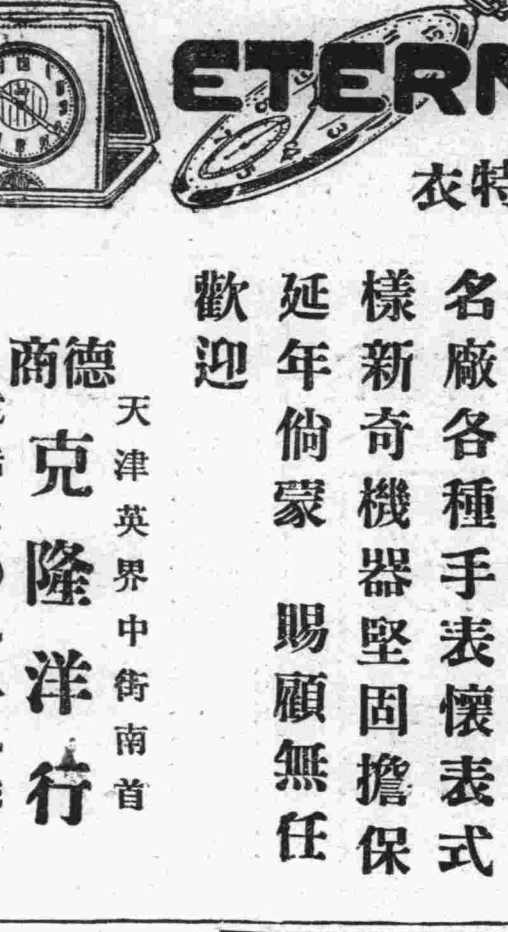 ETERN
特衣
名廠各種手表懷表式
樣新奇機器堅固擔保
延年倘蒙 賜顧無任
歡迎
天津英界中街南首
德商
克隆洋行